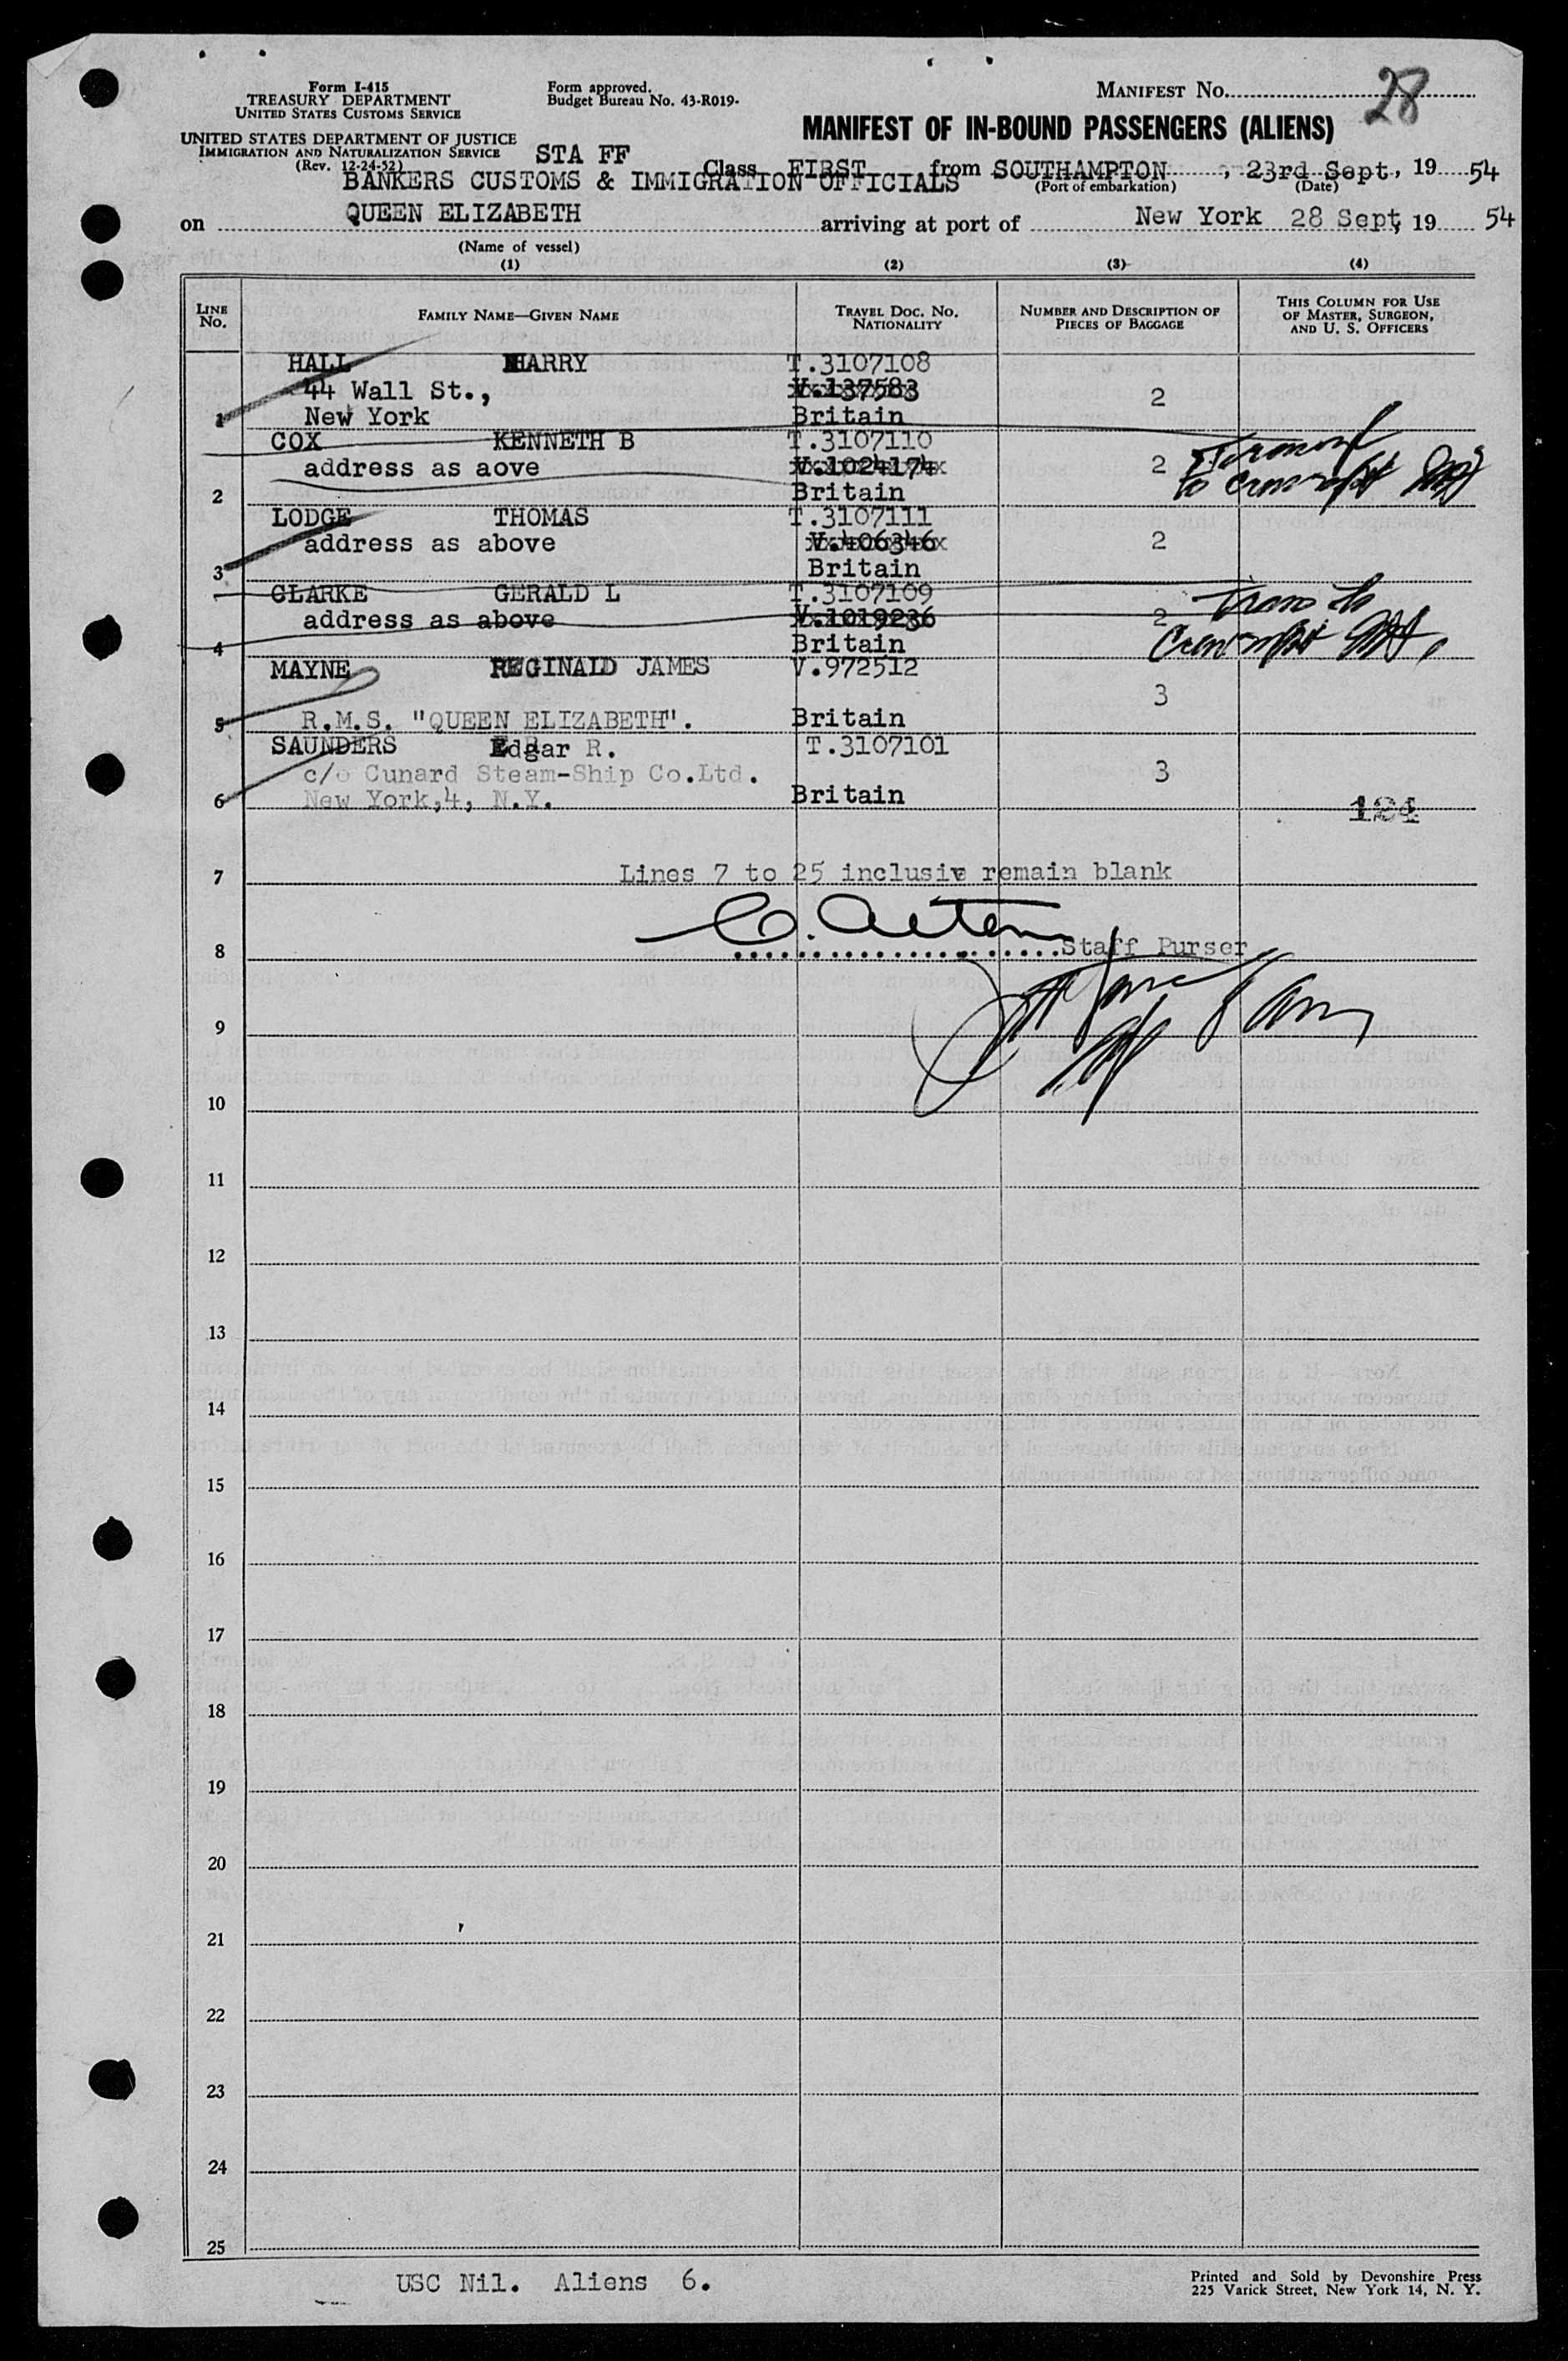 Form I-415
TREASURY DEPARTMENT
UNITED STATES CUSTOMS SERVICE
Form approved.
Budget Bureau No. 43-R019-
MANIFEST No. 28
UNITED STATES DEPARTMENT OF JUSTICE
IMMIGRATION AND NATURALIZATION SERVICE
(Rev. 12-24-52)
MANIFEST OF IN-BOUND PASSENGERS (ALIENS)
STA FF
Class FIRST from SOUTHAMPTON, 23rd Sept, 19 54
(Port of embarkation) (Date)
BANKERS CUSTOMS & IMMIGRATION OFFICIALS
on QUEEN ELIZABETH arriving at port of New York 28 Sept, 19 54
(Name of vessel)
(1) (2) (3) (4)
LINE No. FAMILY NAME—GIVEN NAME TRAVEL DOC. No. NATIONALITY NUMBER AND DESCRIPTION OF PIECES OF BAGGAGE THIS COLUMN FOR USE OF MASTER, SURGEON, AND U. S. OFFICERS
HALL HARRY T.3107108
44 Wall St., V.137583 2
1 New York Britain
COX KENNETH B T.3107110
address as aove V.1024174 2
2 Britain
LODGE THOMAS T.3107111
address as above V.406346 2
3 Britain
CLARKE GERALD L T.3107109 Trans to
address as above V.1019236 2
4 Britain
MAYNE REGINALD JAMES V.972512
3
5 R.M.S. "QUEEN ELIZABETH". Britain
SAUNDERS Edgar R. T.3107101
c/o Cunard Steam-Ship Co.Ltd. 3
6 New York,4, N.Y. Britain
124
7 Lines 7 to 25 inclusive remain blank
8 Staff Purser
9
10
11
12
13
14
15
16
17
18
19
20
21
22
23
24
25
USC Nil. Aliens 6.
Printed and Sold by Devonshire Press
225 Varick Street, New York 14, N. Y.